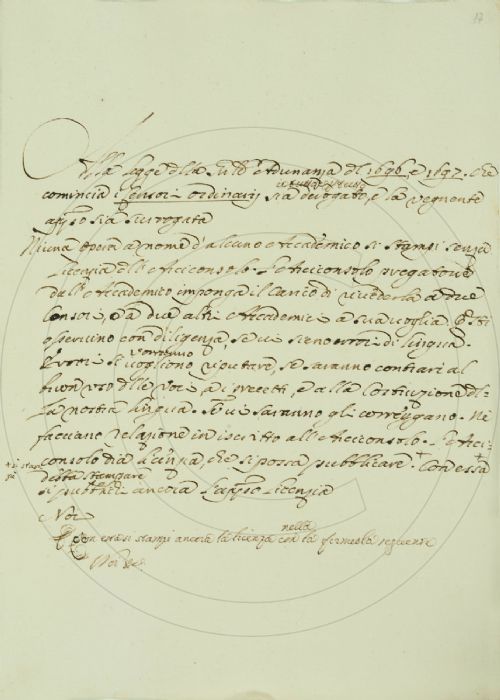 17
Alla legge della Sud. Adunanza del 1696 e 1697. che
comincia i Censori ordinarij sia derogato, e la seguente
appresso sia surrogata
Niuna Opera a nome d'alcuno Accademico si stampi senza
licenza dell'Arciconsolo. L'Arciconsolo pregatone
dall'Accademico imponga il Carico di rivederla a due
Censori, e a due altri Accademici a sua voglia. Questi
osservino con diligenza, se vi sieno errori di lingua.
Errori si vogliono reputare, se saranno contrari al
vorranno
buon uso delle voci, a i precetti, e alla Costituzione del-
la nostra lingua. Se vi saranno gli correggano. Ne
facciano relazione in iscritto all'Arciconsolo. L'Arci-
consolo dia licenza, che si possa pubblicare. Con essa
debba stampare
si pubblichi ancora l'appresso licenza
Noi
Con essa si stampi ancora la licenza con la formola seguente
nella
Noi &c.